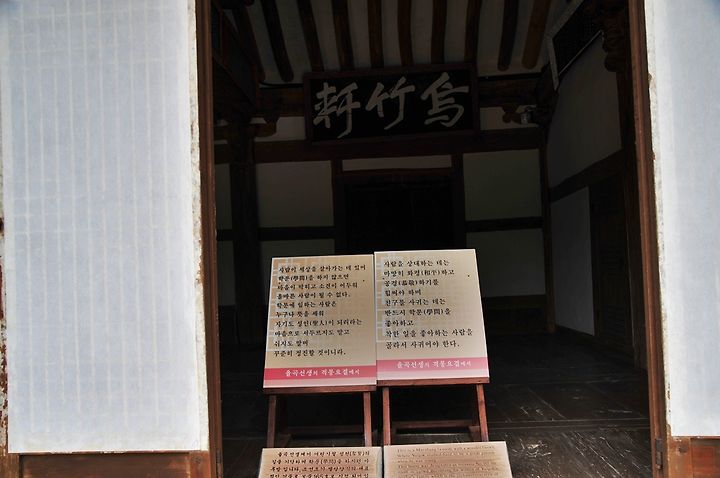 軒竹烏
사람이 세상을 살아가는 데 있어
학문(學問)을 하지 않으면
마음이 막히고 소견이 어두워
올바른 사람이 될 수 없다.
학문에 임하는 사람은
누구나 뜻을 세워
자기도 성인(聖人)이 되리라는
마음으로 서두르지도 말고
쉬지도 말며
꾸준히 정진할 것이니라.
율곡선생의 격몽요결에서
사람을 상대하는 데는
마땅히 화평(和平)하고
공경(恭敬)하기를
힘써야 하며
친구를 사귀는 데는
반드시 학문(學問)을
좋아하고
착한 일을 좋아하는 사람을
골라서 사귀어야 한다.
율곡선생의 격몽요결에서